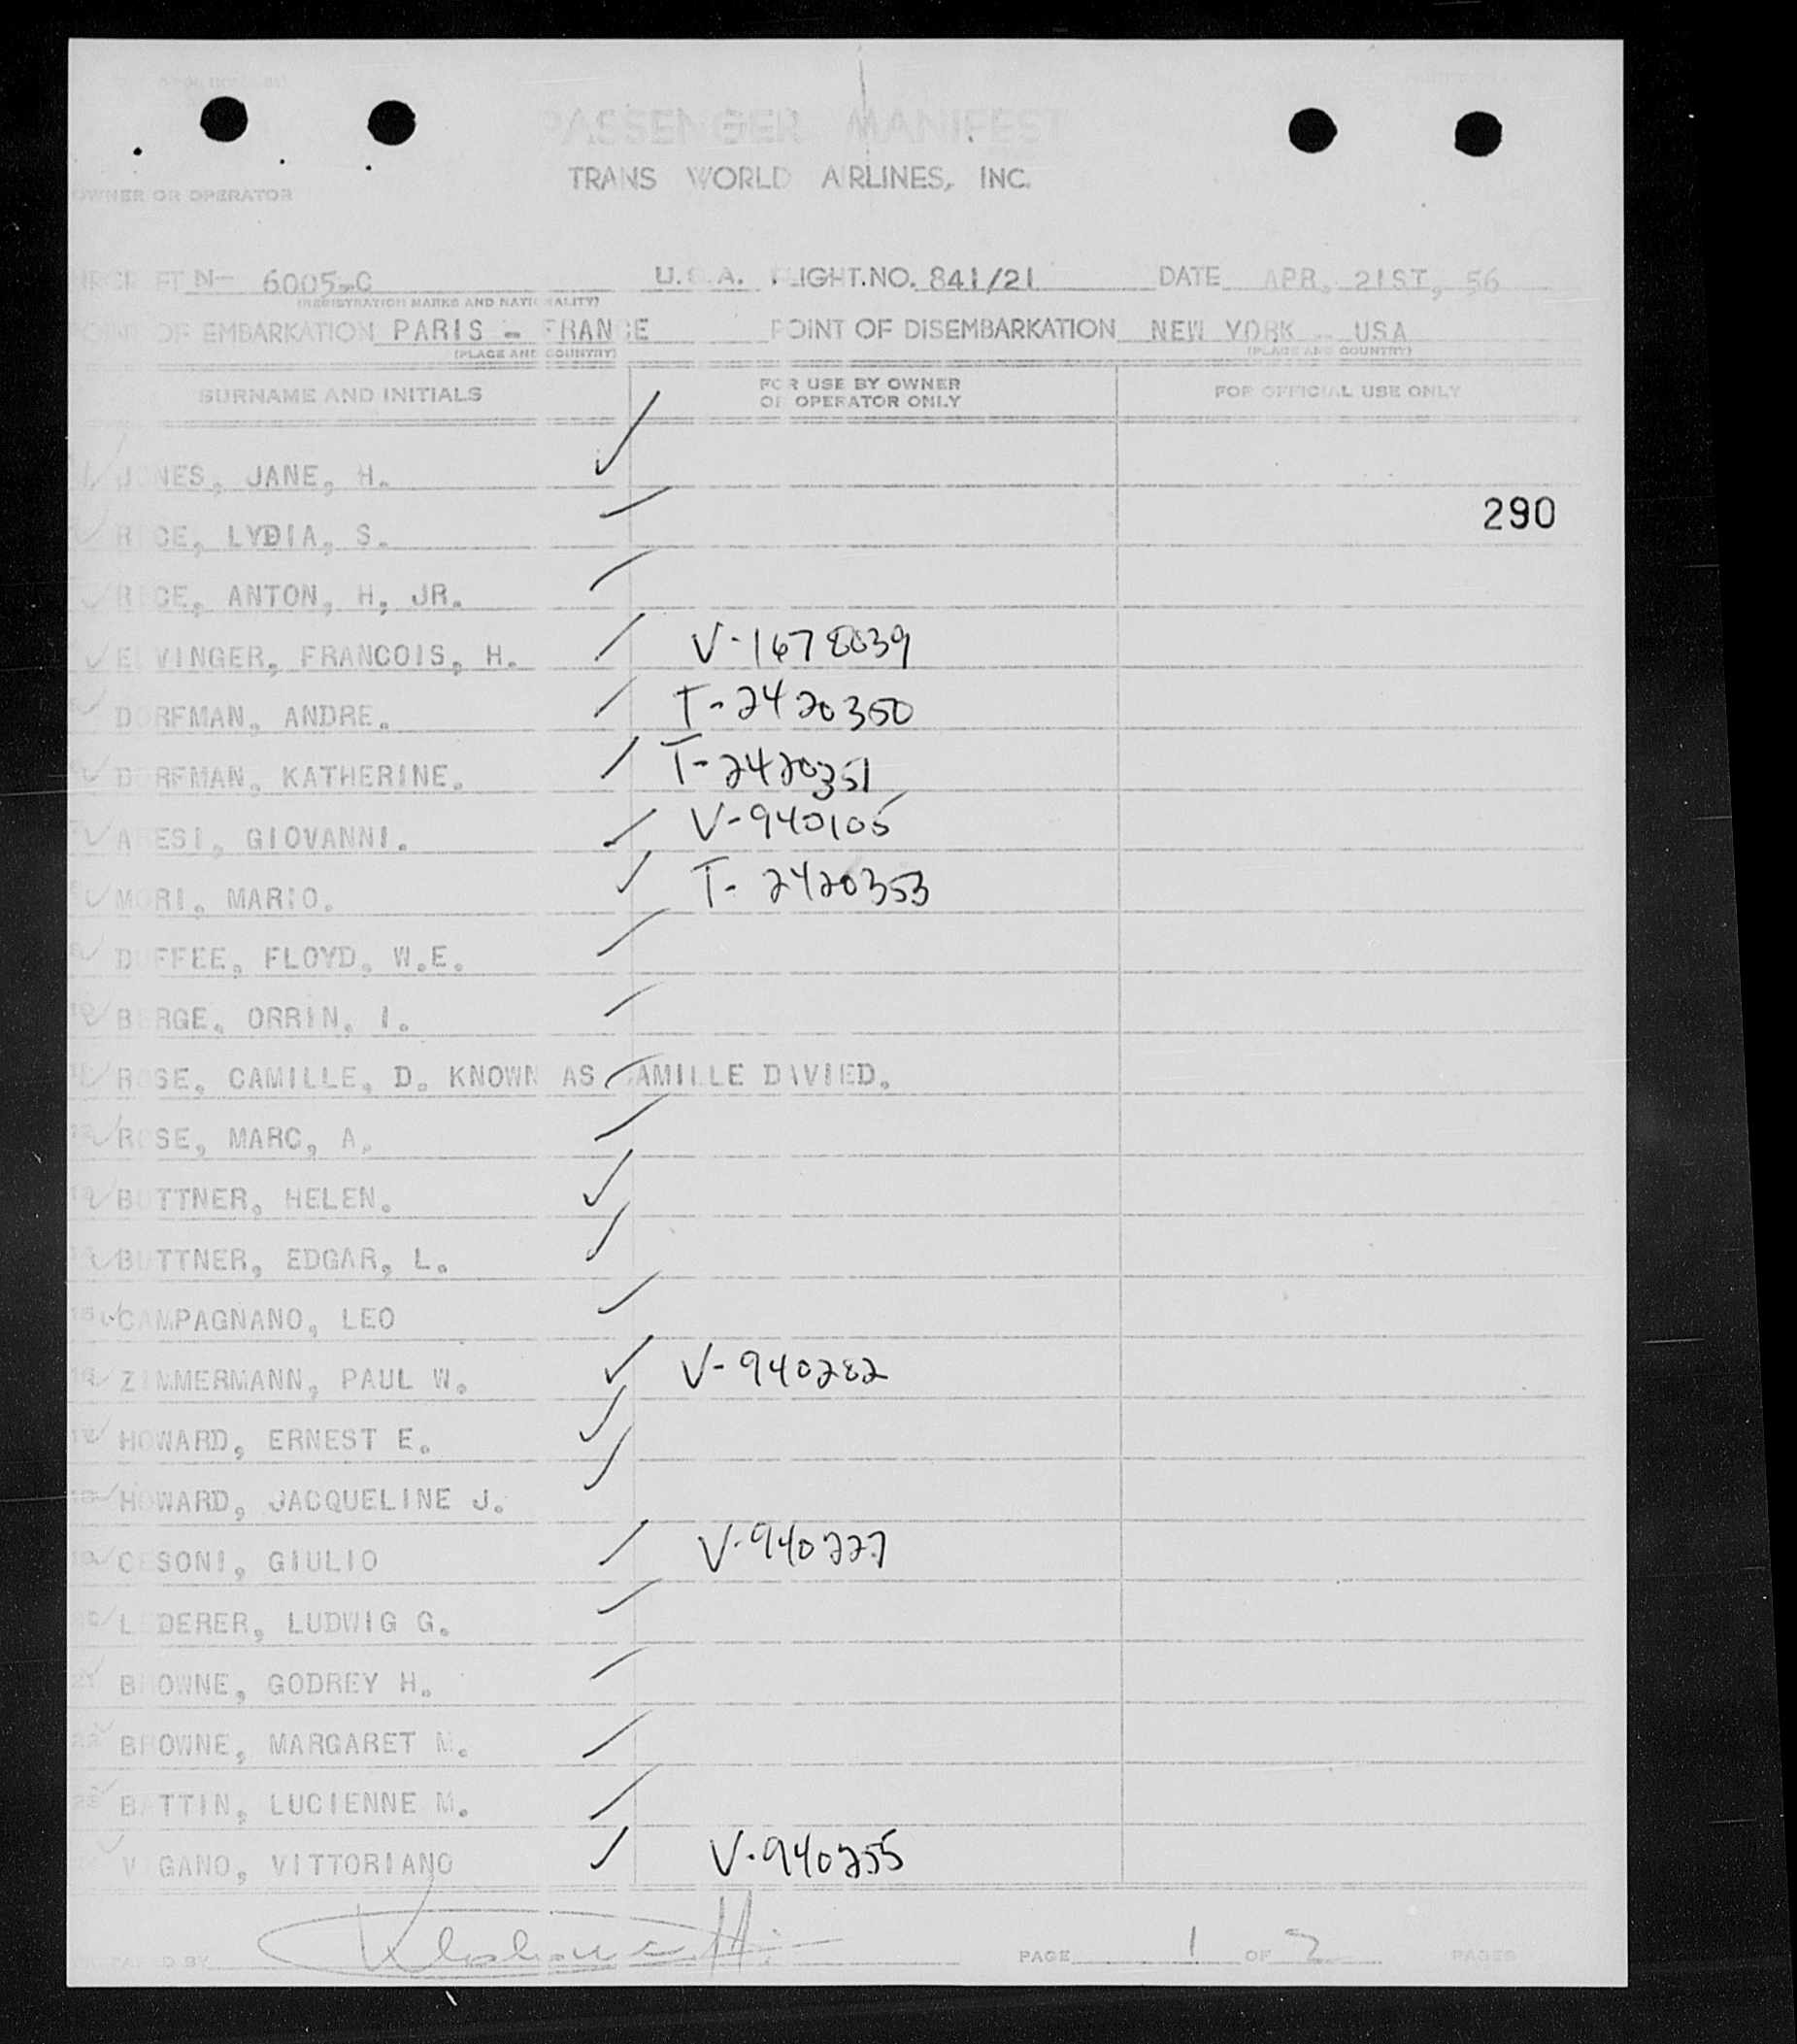 PASSENGER MANIFEST
TRANS WORLD AIRLINES, INC.
OWNER OR OPERATOR
AIRCRAFT N- 6005-C U.S.A. FLIGHT.NO. 841/21 DATE APR. 21ST, 56
(REGISTRATION MARKS AND NATIONALITY)
POINT OF EMBARKATION PARIS - FRANCE POINT OF DISEMBARKATION NEW YORK - USA
(PLACE AND COUNTRY) (PLACE AND COUNTRY)
SURNAME AND INITIALS FOR USE BY OWNER OR OPERATOR ONLY FOR OFFICIAL USE ONLY
1 JONES, JANE, H.
290
RICE, LYDIA, S.
RICE, ANTON, H, JR.
ELVINGER, FRANCOIS, H. V-1678039
DORFMAN, ANDRE. T-2420350
DORFMAN, KATHERINE. T-2420351
ARESI, GIOVANNI. V-940105
MORI, MARIO. T-2420353
DUFFEE, FLOYD, W.E.
10 BERGE, ORRIN, I.
11 ROSE, CAMILLE, D. KNOWN AS CAMILLE DAVIED.
12 ROSE, MARC, A.
13 BUTTNER, HELEN.
14 BUTTNER, EDGAR, L.
15 CAMPAGNANO, LEO
16 ZIMMERMANN, PAUL W. V-940282
17 HOWARD, ERNEST E.
18 HOWARD, JACQUELINE J.
19 CESONI, GIULIO V-940227
20 LEDERER, LUDWIG G.
21 BROWNE, GODREY H.
22 BROWNE, MARGARET M.
23 BATTIN, LUCIENNE M.
VIGANO, VITTORIANO V-940255
PREPARED BY PAGE 1 OF 2 PAGES